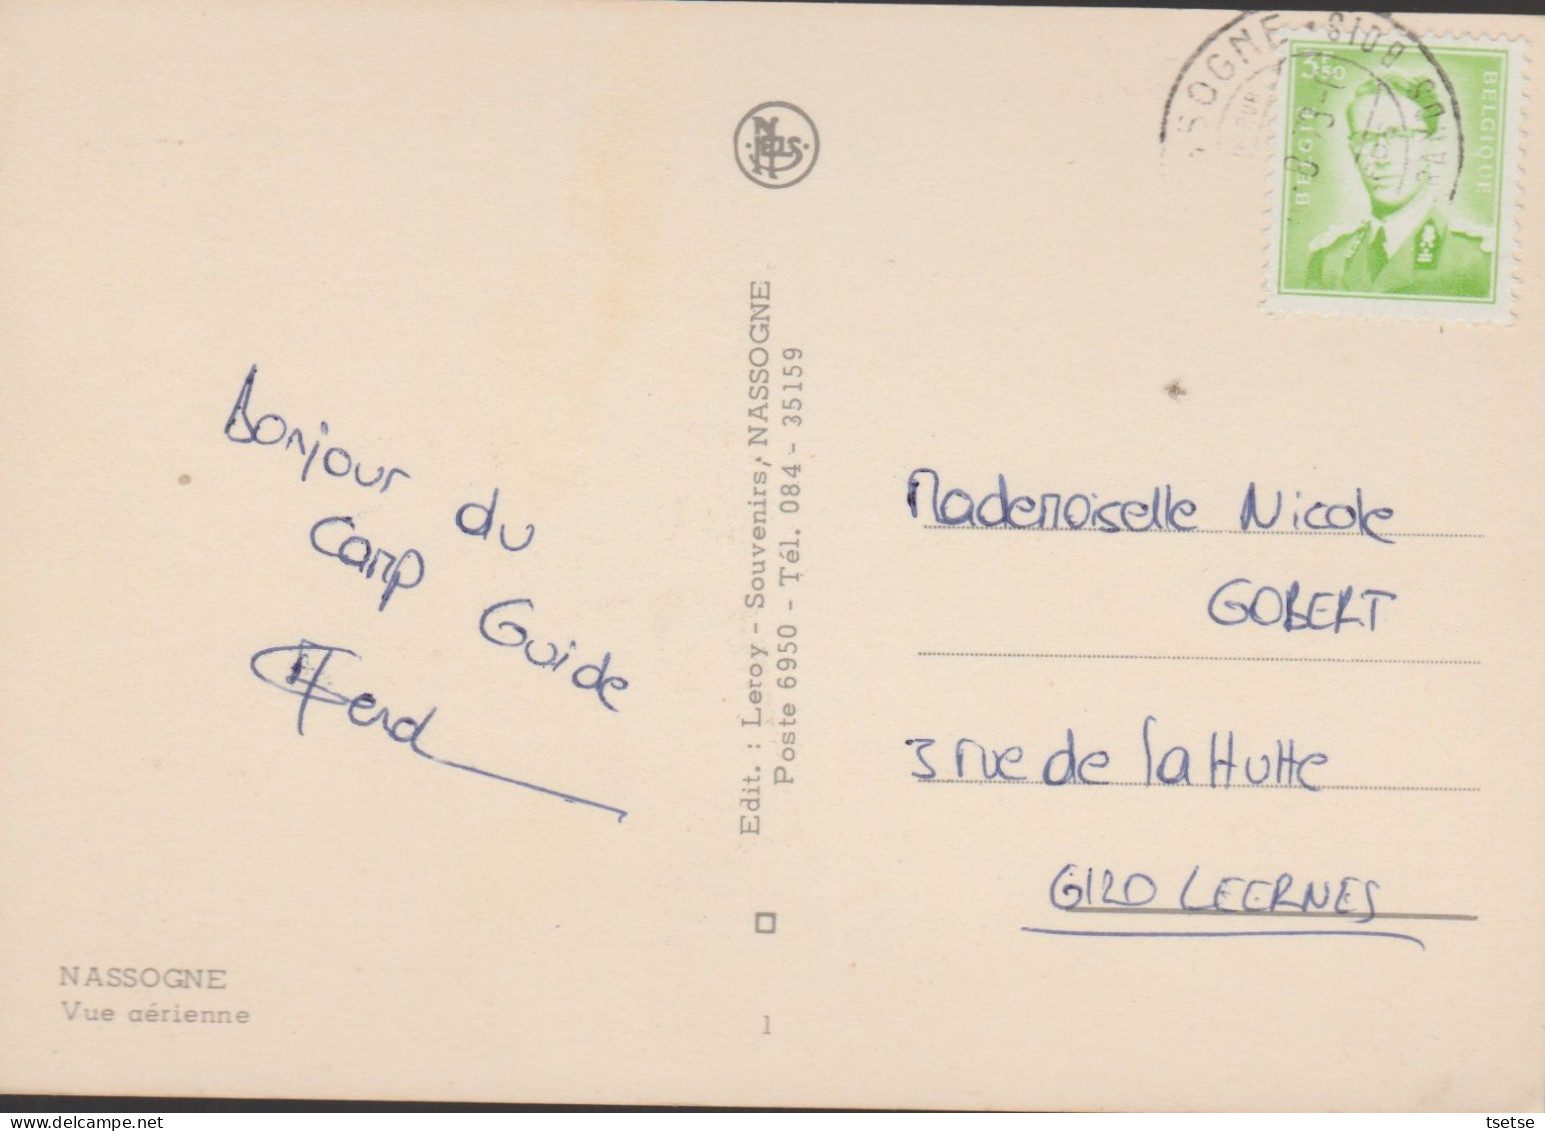 Bonjour du
Camp Guide
Ferd
NASSOGNE
Vue aérienne
NELS
Edit. : Leroy - Souvenirs, NASSOGNE
Poste 6950 - Tél. 084 - 35159
1
SOGNE • BOIS
3F50
BELGIE
BELGIQUE
Mademoiselle Nicole
GOBERT
3 rue de la Hutte
6120 LEERNES
tsetse